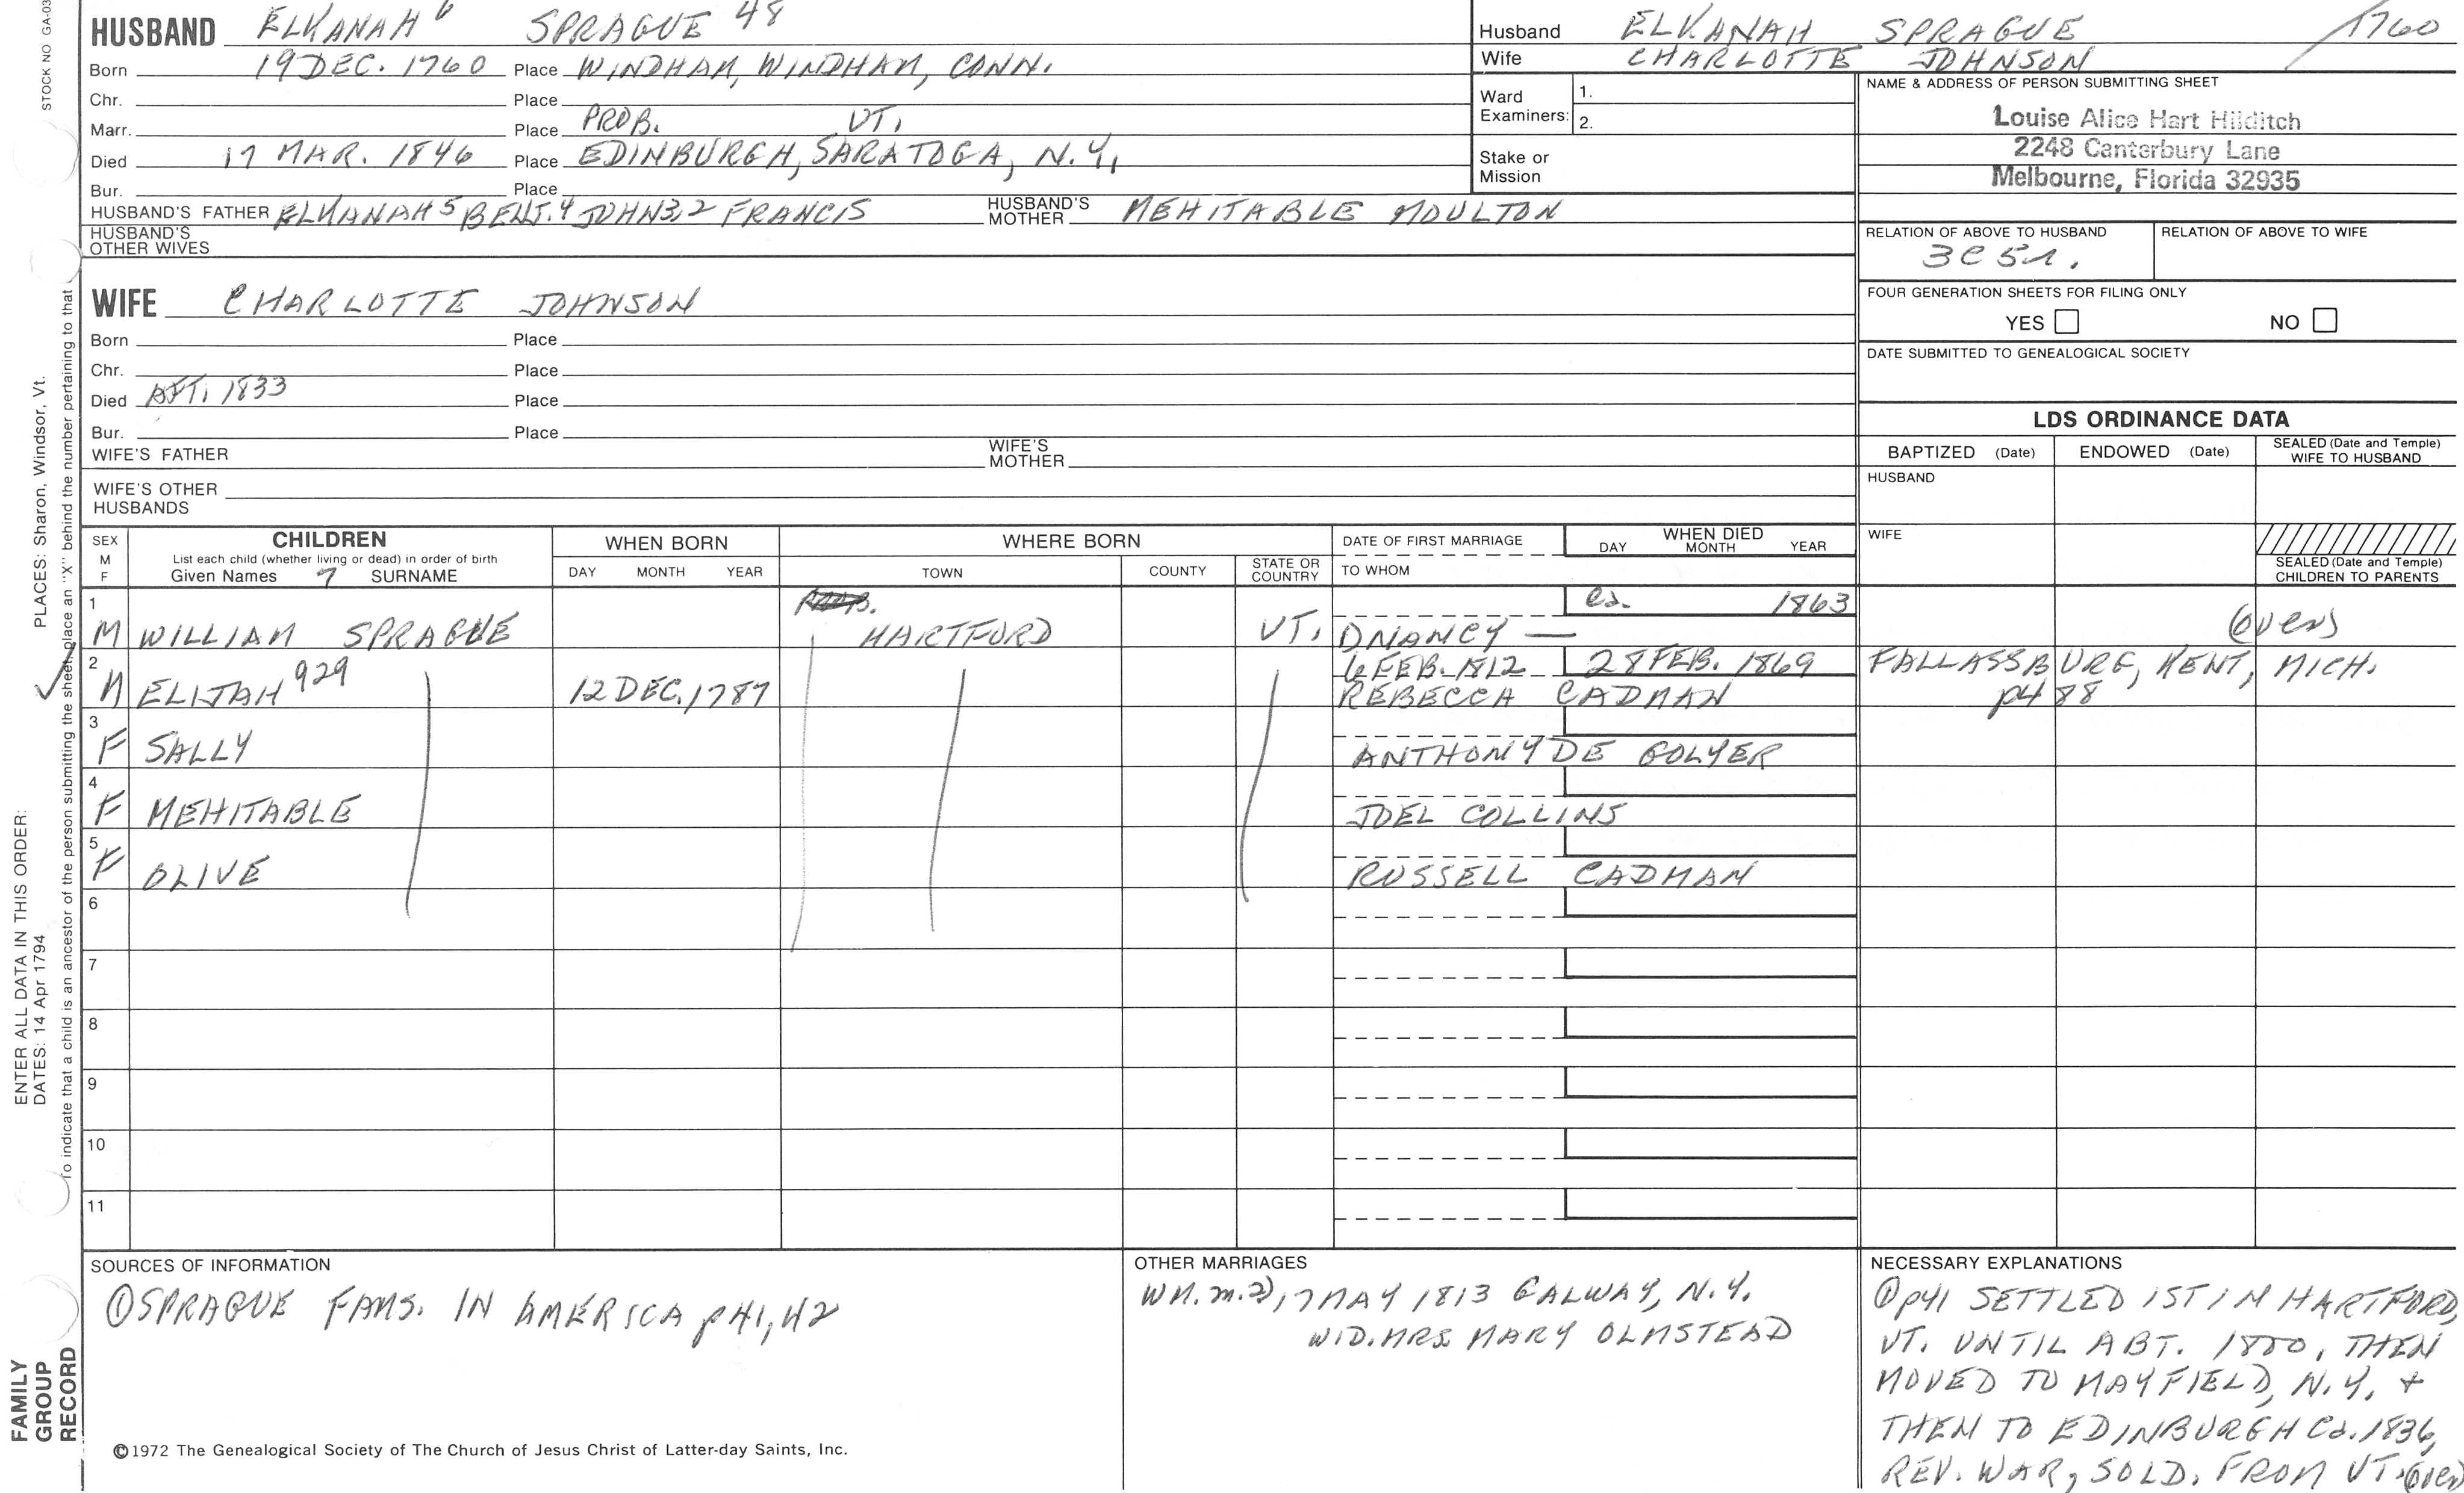 STOCK NO GA-03
HUSBAND ELKANAH 6 SPRAGUE 48
Born 19 DEC. 1760 Place WINDHAM, WINDHAM, CONN.
Chr. Place
Marr. Place PROB. VT.
Died 17 MAR. 1846 Place EDINBURGH, SARATOGA, N.Y.
Bur. Place
HUSBAND'S FATHER ELKANAH 5 BENJ. 4 JOHN 3,2 FRANCIS HUSBAND'S MOTHER MEHITABLE MOULTON
HUSBAND'S OTHER WIVES
Husband ELKANAH SPRAGUE 1760
Wife CHARLOTTE JOHNSON
Ward Examiners: 1.
2.
Stake or Mission
NAME & ADDRESS OF PERSON SUBMITTING SHEET
Louise Alice Hart Hilditch
2248 Canterbury Lane
Melbourne, Florida 32935
RELATION OF ABOVE TO HUSBAND RELATION OF ABOVE TO WIFE
3C 5r.
FOUR GENERATION SHEETS FOR FILING ONLY
YES NO
DATE SUBMITTED TO GENEALOGICAL SOCIETY
WIFE CHARLOTTE JOHNSON
Born Place
Chr. Place
Died AFT. 1833 Place
Bur. Place
WIFE'S FATHER WIFE'S MOTHER
WIFE'S OTHER HUSBANDS
LDS ORDINANCE DATA
BAPTIZED (Date) ENDOWED (Date) SEALED (Date and Temple) WIFE TO HUSBAND
HUSBAND
WIFE
SEALED (Date and Temple) CHILDREN TO PARENTS
SEX M F
CHILDREN
List each child (whether living or dead) in order of birth
Given Names 7 SURNAME
WHEN BORN
DAY MONTH YEAR
WHERE BORN
TOWN COUNTY STATE OR COUNTRY
DATE OF FIRST MARRIAGE
TO WHOM
WHEN DIED
DAY MONTH YEAR
1 ca. 1863
M WILLIAM SPRAGUE HARTFORD VT. 1) NANCY — (over)
2 6 FEB. 1812 28 FEB. 1869 FALLASSBURG, KENT, MICH.
M ELIJAH 929 12 DEC. 1787 REBECCA CADMAN p488
3
F SALLY ANTHONY DE GOLYER
4
F MEHITABLE JOEL COLLINS
5
F OLIVE RUSSELL CADMAN
6
7
8
9
10
11
SOURCES OF INFORMATION
① SPRAGUE FAMS. IN AMERICA p41,42
©1972 The Genealogical Society of The Church of Jesus Christ of Latter-day Saints, Inc.
OTHER MARRIAGES
WM. m. 2) 17 MAY 1813 GALWAY, N.Y.
WID. MRS. MARY OLMSTEAD
NECESSARY EXPLANATIONS
① p41 SETTLED 1ST IN HARTFORD,
VT. UNTIL ABT. 1800, THEN
MOVED TO MAYFIELD, N.Y. +
THEN TO EDINBURGH Ca. 1836,
REV. WAR, SOLD. FROM VT. (over)
ENTER ALL DATA IN THIS ORDER:
DATES: 14 Apr 1794 PLACES: Sharon, Windsor, Vt.
To indicate that a child is an ancestor of the person submitting the sheet, place an "X" behind the number pertaining to that
FAMILY
GROUP
RECORD